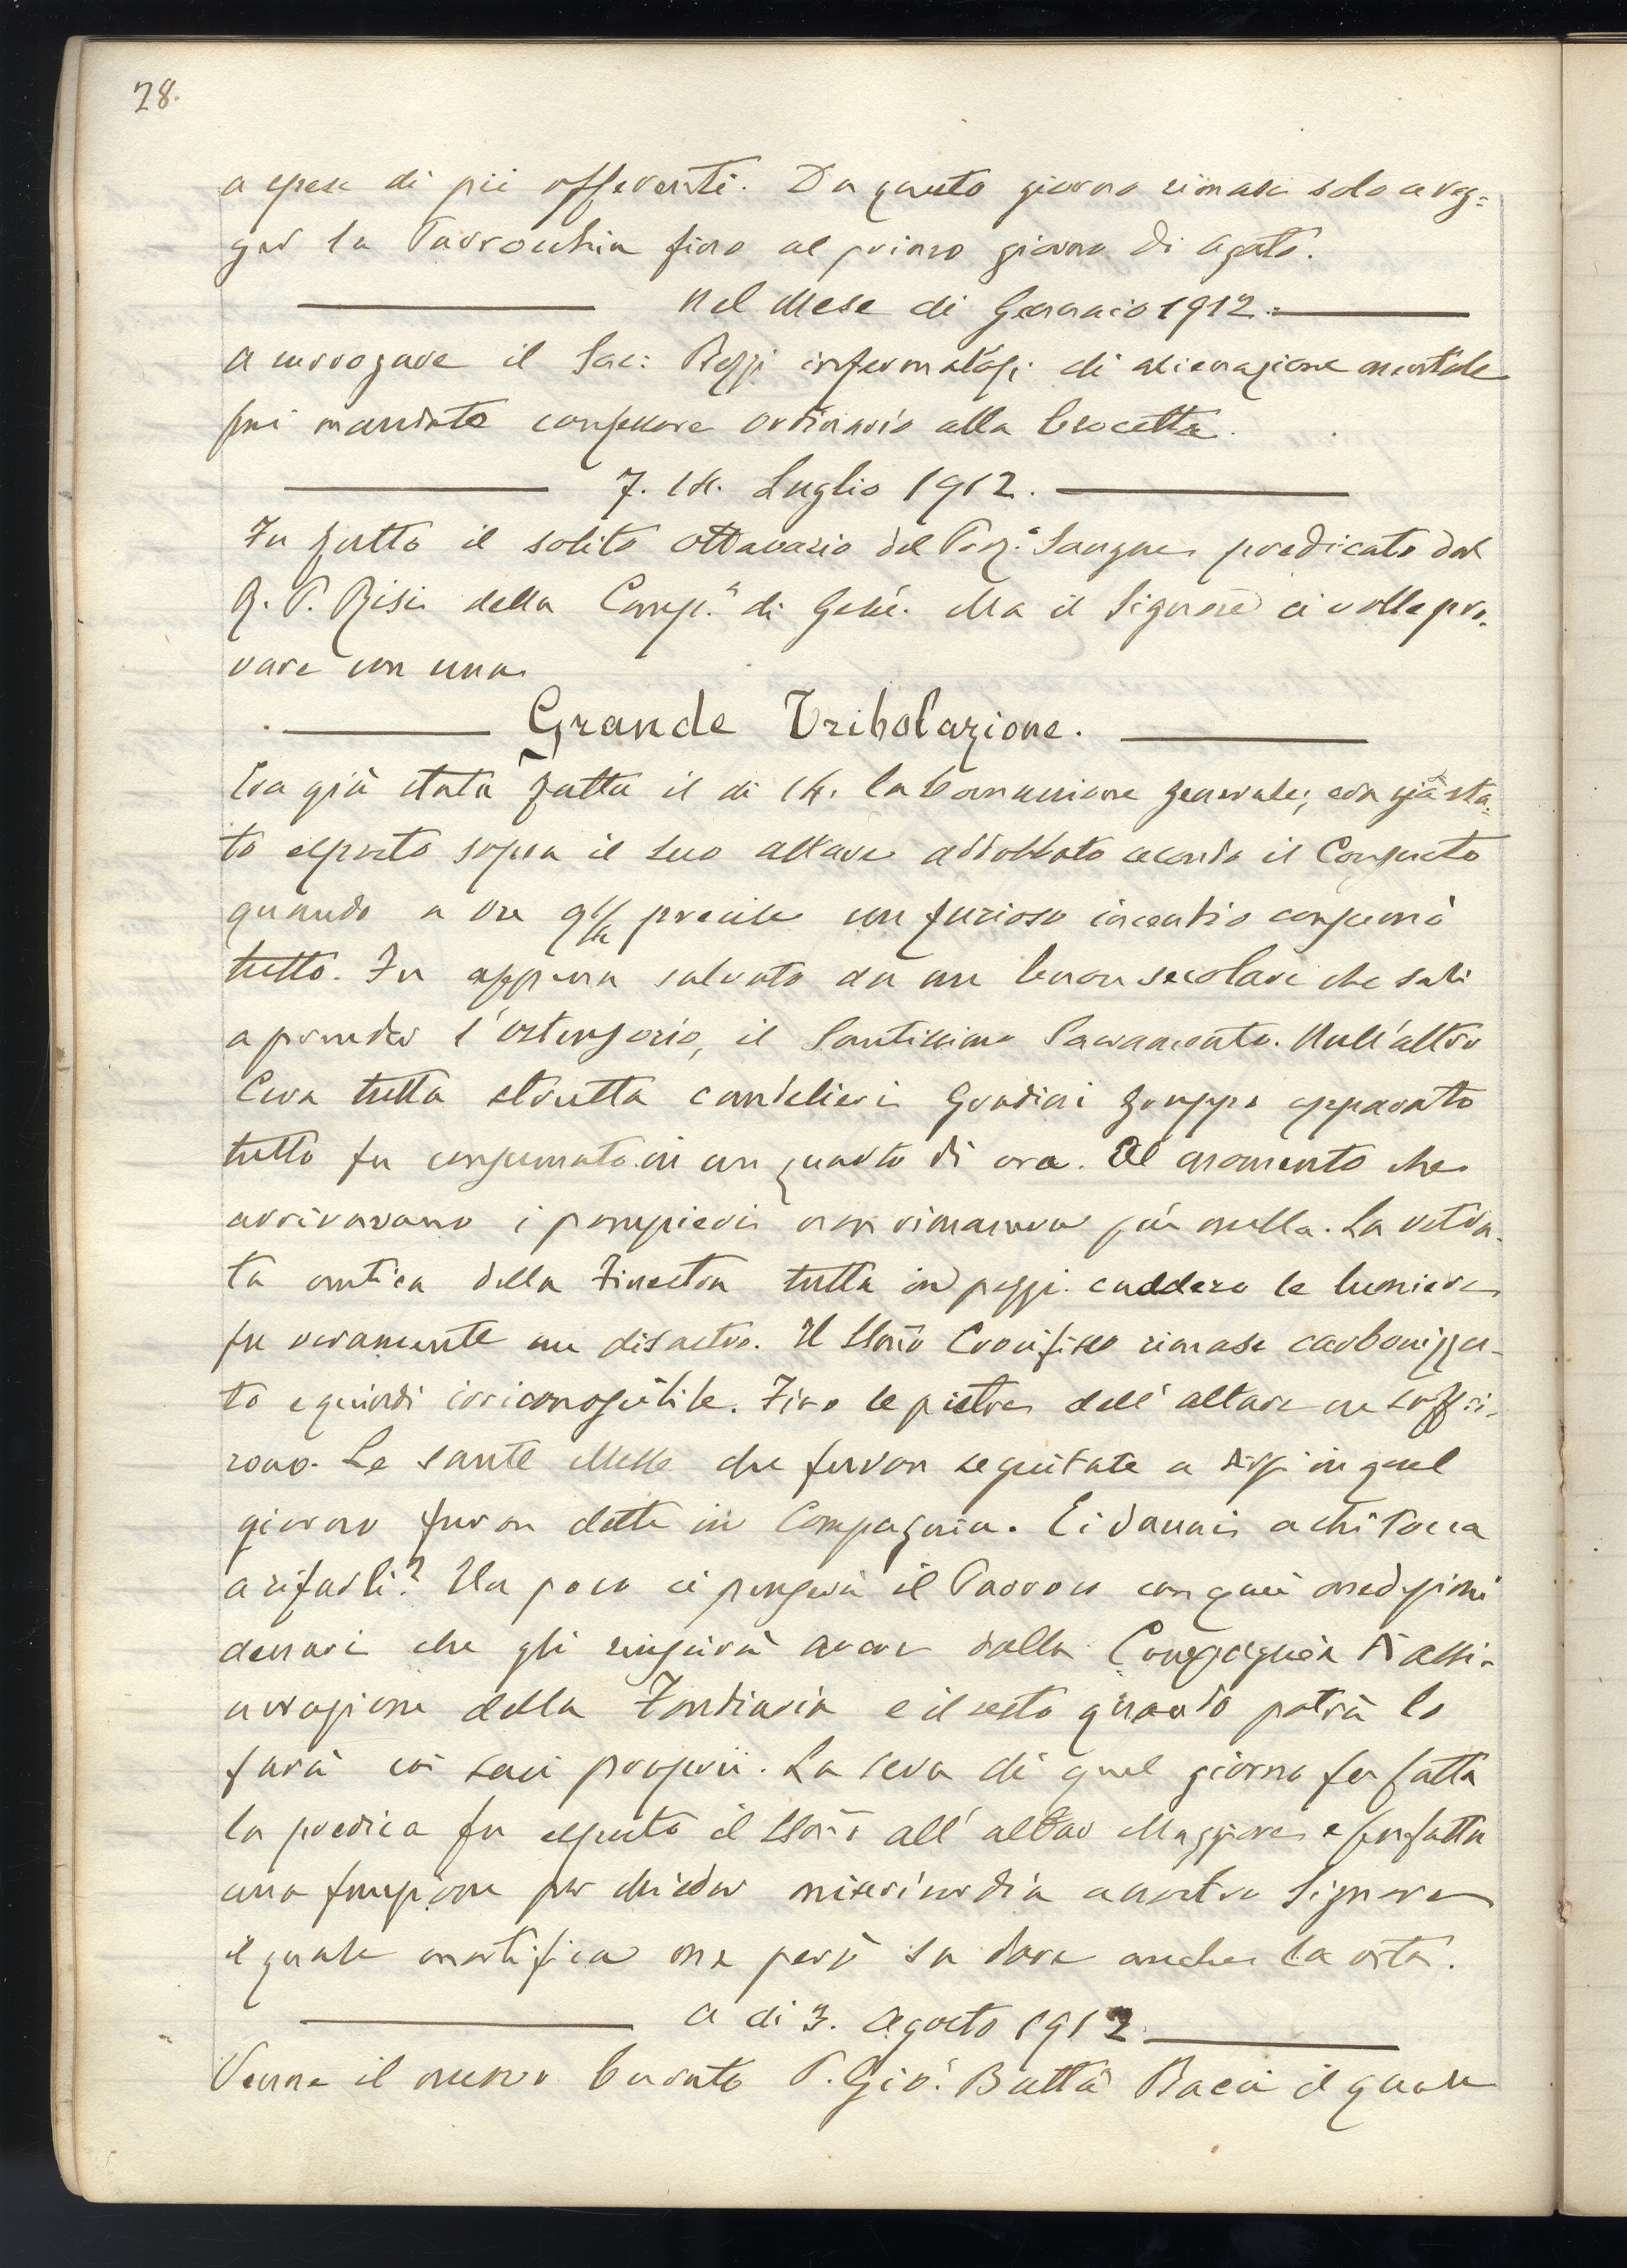 28.
a spese di pii offerenti. Da questo giorno rimasi solo a reg=
ger la Parrocchia fino al primo giorno di Agosto.
Nel Mese di Gennaio 1912.
A surrogare il Sac: Rezzi infermatosi di alienazione mentale
fui mandato confessore ordinario alla Crocetta.
7. 14. Luglio 1912.
Fu fatto il solito Ottavario del Prez.o Sangue predicato dal
R. P. Risi della Comp.a di Gesù. Ma il Signore ci volle pro-
vare con una
Grande Tribolazione.
Era già stata fatta il dì 14. la Comunione generale; era già sta=
to esposto sopra il suo altare addobbato secondo il Consueto
quando a ore 9 1/4 precise un furioso incendio consumò
tutto. Fu appena salvato da un buon secolare che salì
a prender l'ostensorio, il Santissimo Sacramento. Null'altro
Cera tutta strutta candelieri Gradini gruppo apparato
tutto fu consumato in un quarto di ora. Al momento che
arrivarano i pompieri non rimaneva più nulla. La vetra-
ta antica della Finestra tutta in pezzi. caddero le lumiere
fu veramente un disastro. Il SSmo Crocifisso rimase carbonizza-
to e quindi irriconoscibile. Fino le pietre dell'altare ne soffri-
rono. Le sante Messe che furon seguitate a dirsi in quel
giorno furon dette in Compagnia. E i danni a chi tocca
a rifarli? Un poco ci penserà il Parroco con quei
denari che gli riuscirà avere dalla Compagnia di assi-
curazione della Fondiaria e il resto quando potrà lo
farà coi suoi proprii. La sera di quel giorno fu fatta
la predica fu esposto il SSmo all'altar Maggiore e fu fatta
una funzione per chieder misericordia a nostro Signore
il quale mortifica ma però sa dare anche la vita.
A dì 3. Agosto 1912
Venne il nuovo Curato P. Gio: Batta Bacci il quale